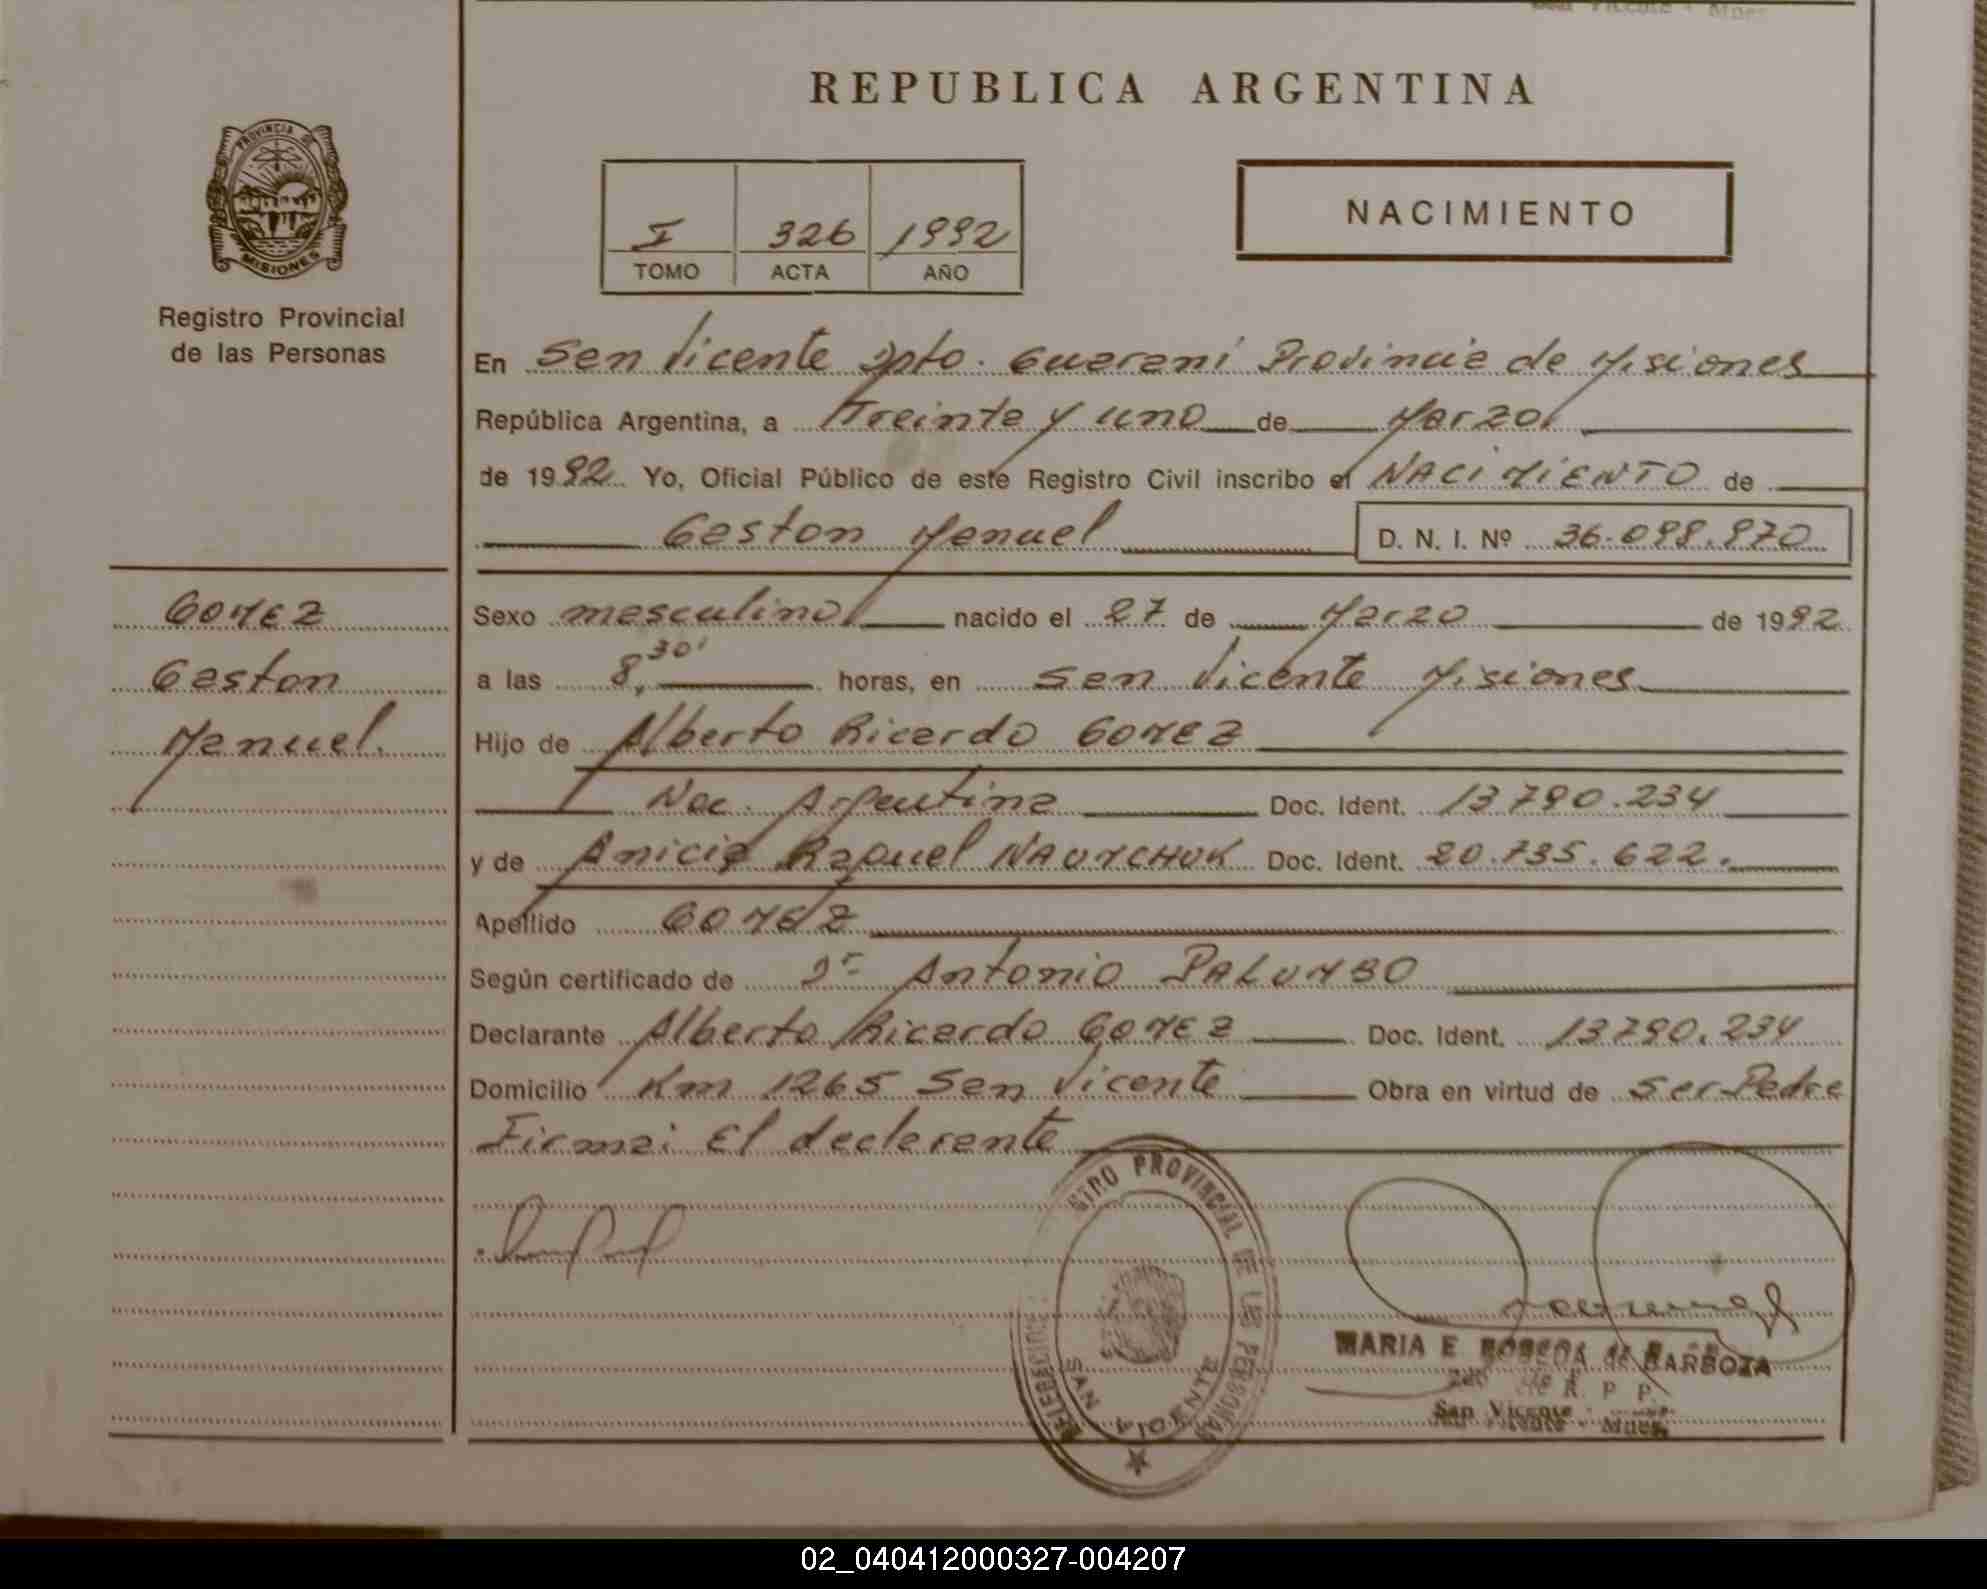 San Vicente - Mnes
REPUBLICA ARGENTINA
PROVINCIA DE
MISIONES
Registro Provincial
de las Personas
I 326 1992
TOMO ACTA AÑO
NACIMIENTO
En San Vicente Dpto. Guaraní Provincia de Misiones
República Argentina, a Treinta y uno de Marzo
de 1992 Yo, Oficial Público de este Registro Civil inscribo el NACIMIENTO de
Gaston Manuel D. N. I. Nº 36.098.970
GOMEZ
Gaston
Manuel.
Sexo masculino nacido el 27 de Marzo de 1992
a las 8,30' horas, en San Vicente Misiones
Hijo de Alberto Ricardo GOMEZ
Nac. Argentina Doc. Ident. 13790.234
y de Anicia Raquel NAUMCHUK Doc. Ident. 20.735.622.
Apellido GOMEZ
Según certificado de Dr Antonio PALUMBO
Declarante Alberto Ricardo GOMEZ Doc. Ident. 13790.234
Domicilio Km 1265 San Vicente Obra en virtud de Ser Padre
Firma: El declarante
PROVINCIAL DE LAS PERSONAS
SAN VICENTE
MARIA E de BARBOZA
de R. P P.
San Vicente - Mnes.
02_040412000327-004207